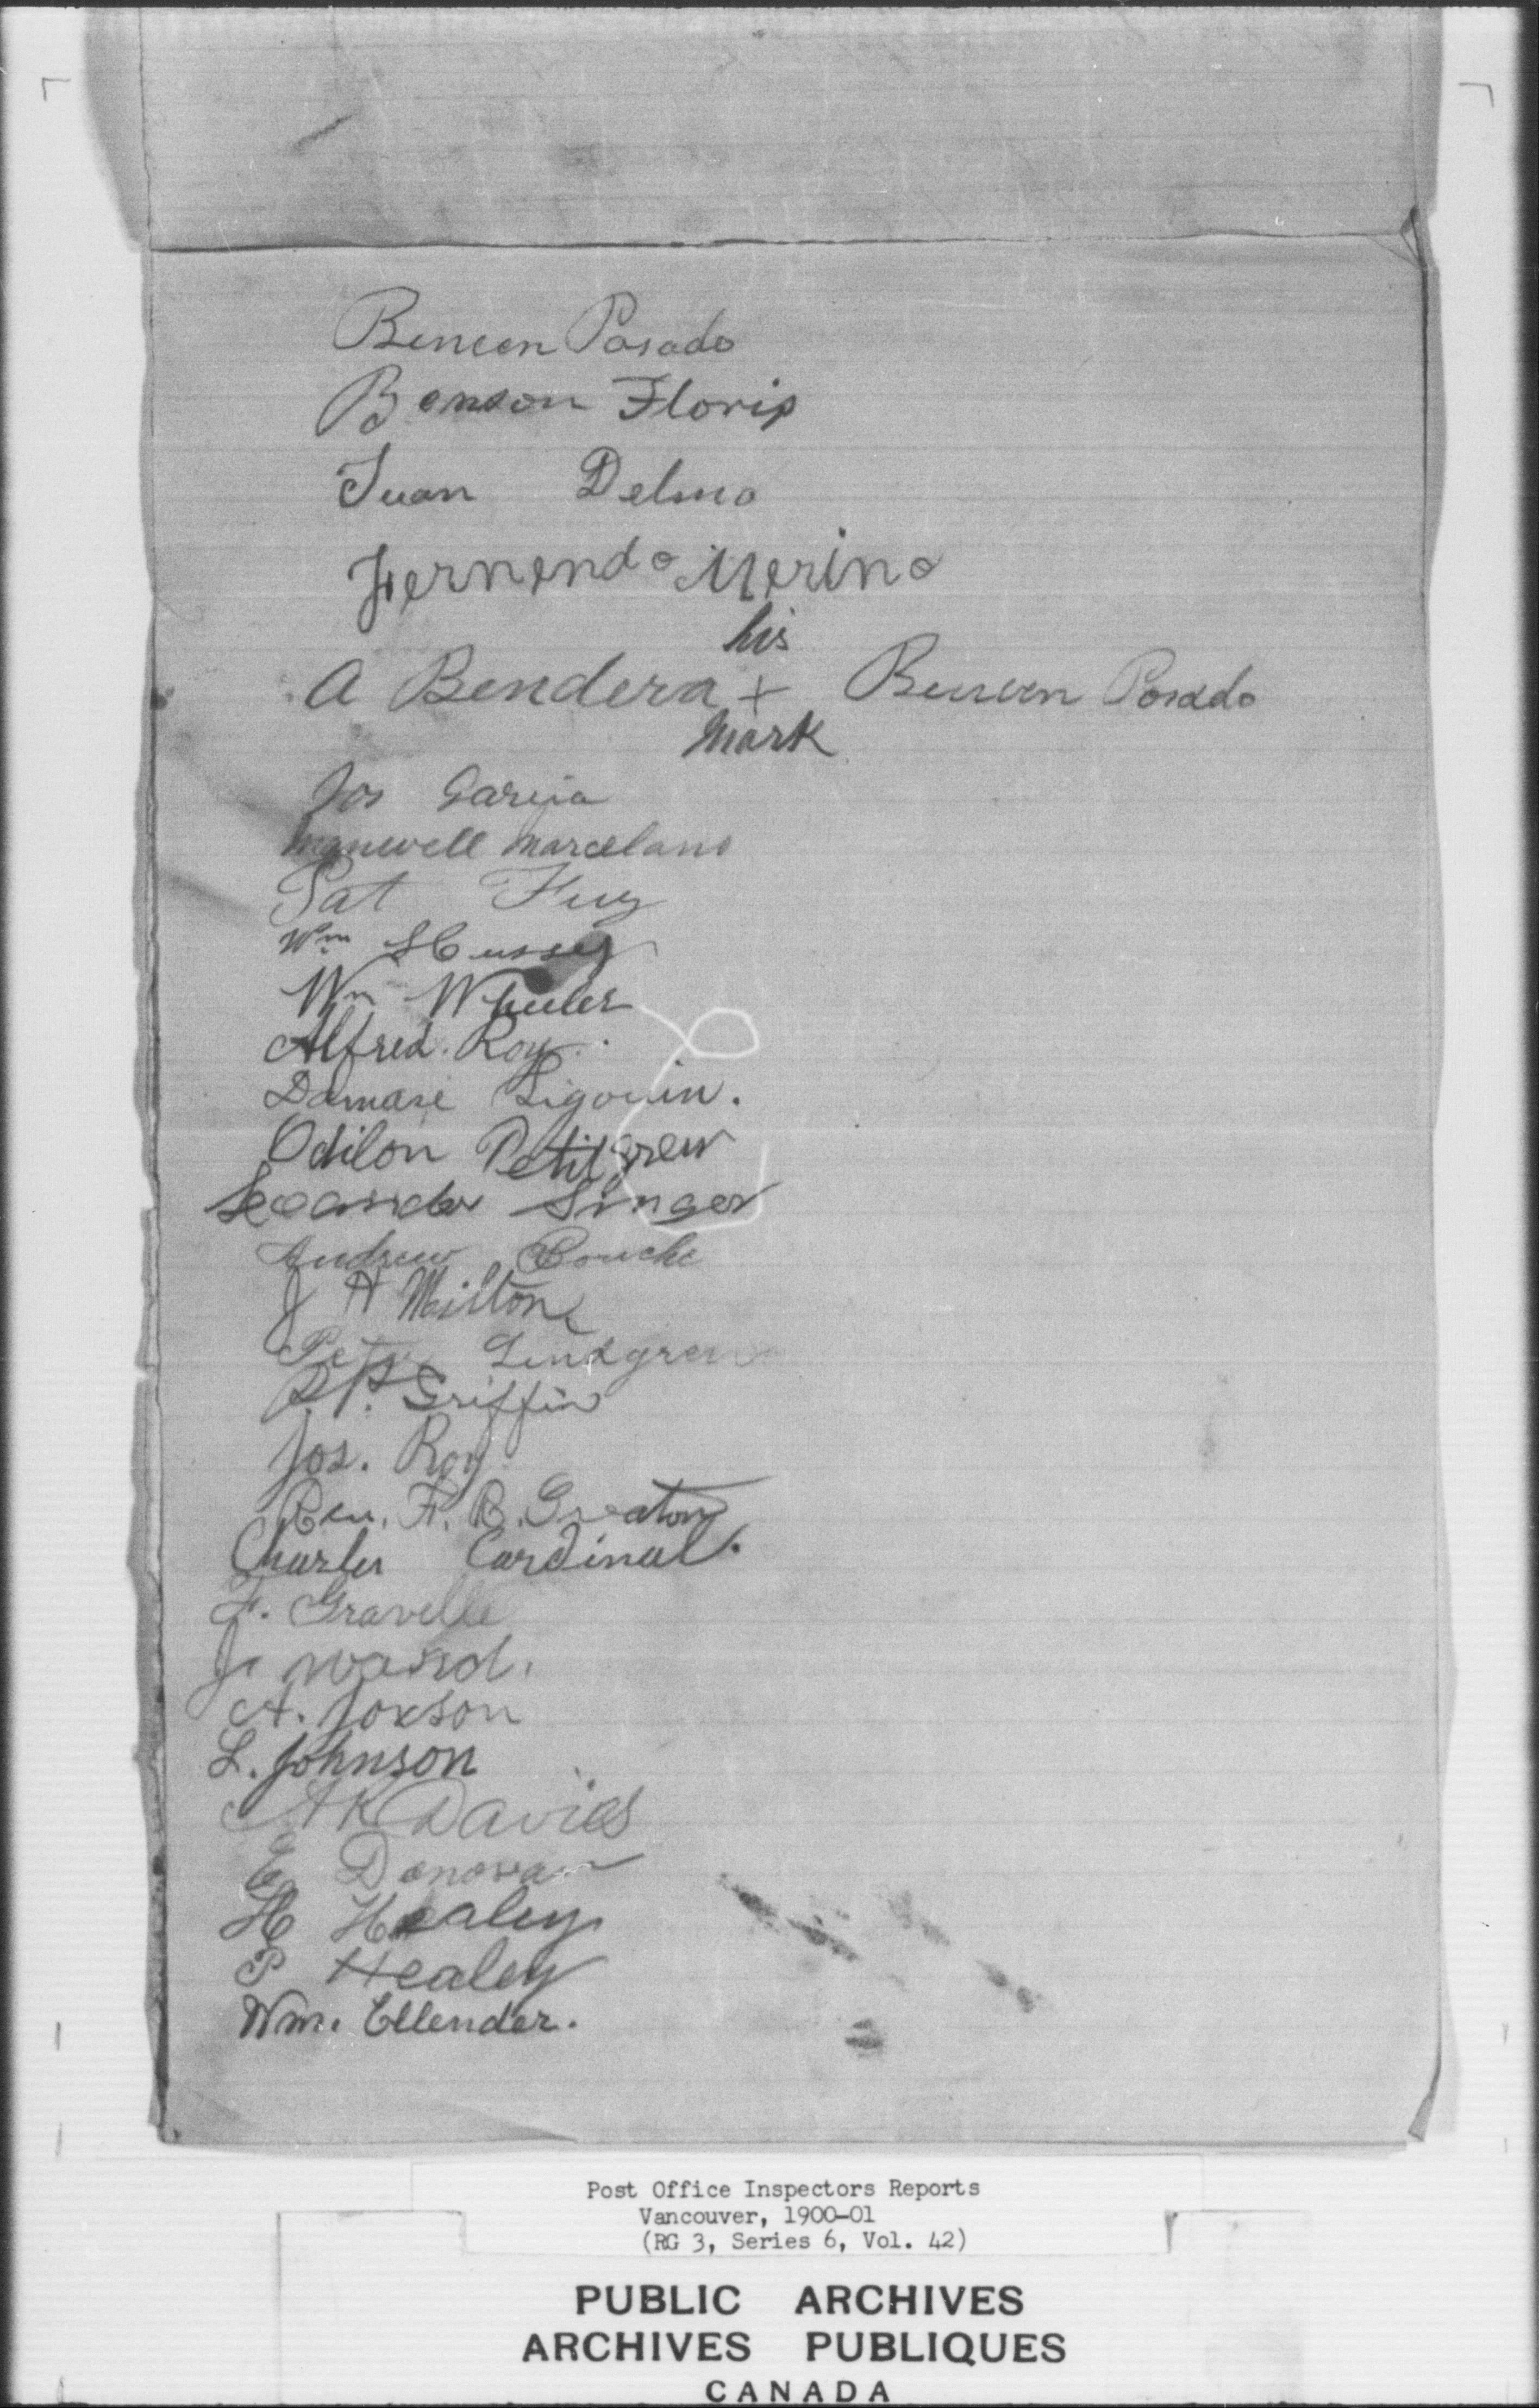 Benson Posado
Benson Floris
Juan Delmo
Fernendo Merino
his
A Bendera + Benson Posado
Mark
Jos Garcia
Manuwell Marcelano
Pat Fuy
Wm Hussey
Wm Wheeler
Alfred. Roy.
Damase Ligouin.
Odilon Petitgrew
Leander Singer
Andrew Bouche
J A Milton
Peter Lindgren
P.P. Griffin
Jos. Roy
Rev. F. R. Greaton
Charles Cardinal.
F. Gravelle
J. Ward.
A. Joxson
L. Johnson
A K Davies
E Donovan
H Healey
P Healey
Wm. Ellender.
Post Office Inspectors Reports
Vancouver, 1900-01
(RG 3, Series 6, Vol. 42)
PUBLIC ARCHIVES
ARCHIVES PUBLIQUES
CANADA